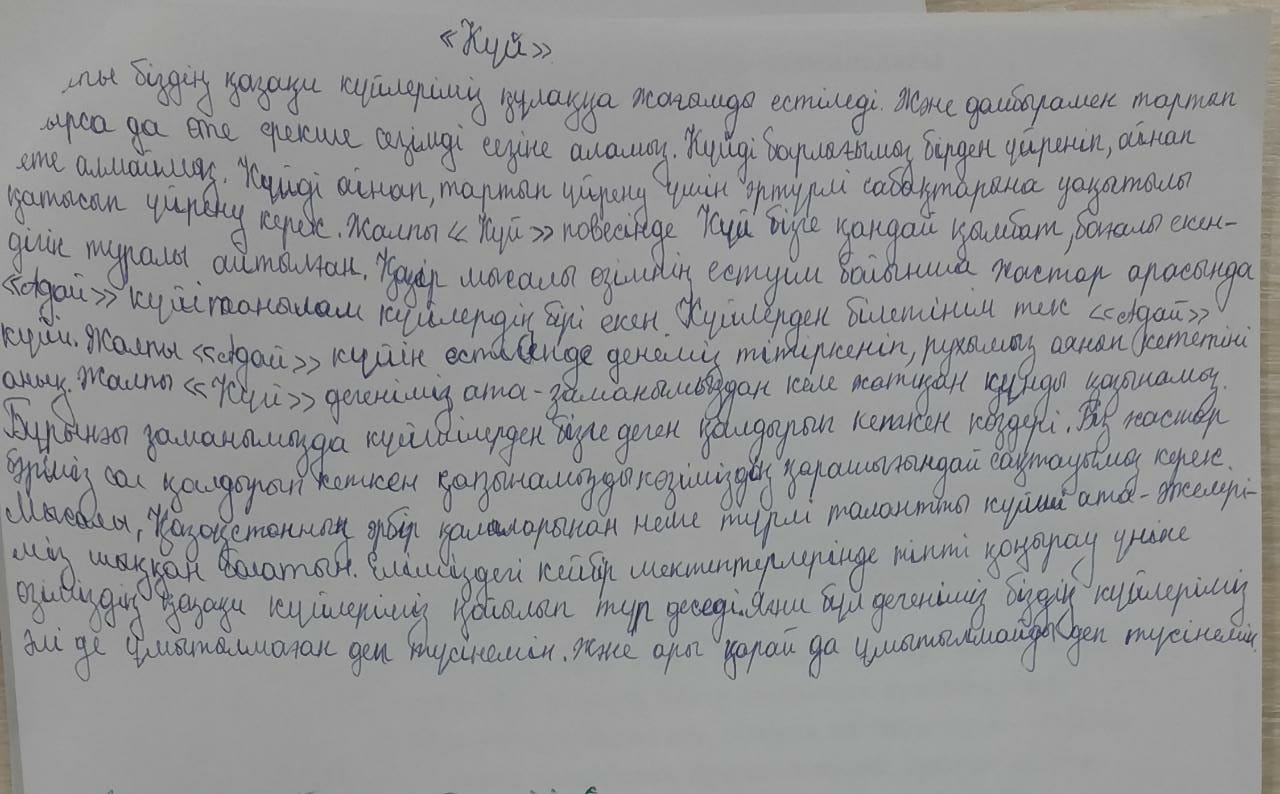 «Күй»
біздің қазақи күйлеріміз құлаққа жағымды естіледі. Және домбырамен тартып
да өте ерекше сезімді сезіне аламыз. Күйді барлығымыз бірден үйреніп, ойнап
кете алмаймыз. Күйді ойнап, тартып үйрену үшін әртүрлі сабақтарына уақытылы
қатысып үйрену керек. Жалпы «Күй» повесінде Күй бізге қандай қымбат, бағалы екен-
дігін туралы айтылған. Қазір мысалы өзімнің естуім бойынша жастар арасында
«Адай» күйі танылам күйлердің бірі екен. Күйлерден білетінім тек «Адай»
күйі. Жалпы «Адай» күйін естігенде денеміз тітіркеніп, рухымыз оянып кететіні
анық. Жалпы «Күй» дегеніміз ата-заманымыздан келе жатқан құнды қазынамыз.
Бұрынғы заманымызда күйшілерден бізге деген қалдырып кеткен көздері. Біз жастар
бәріміз сол қалдырып кеткен қазынамызды көзіміздің қарашығындай сақтауымыз керек.
Мысалы, Қазақстанның әрбір қалаларынан неше түрлі талантты күйші ата-әжелері-
міз шыққан болатын. Еліміздегі кейбір мектептерлерінде тіпті қоңырау үніне
өзіміздің қазақи күйлеріміз қойылып тұр деседі. Яғни бұл дегеніміз біздің күйлеріміз
әлі де ұмытылмаған деп түсінемін. Және ары қарай да ұмытылмайды деп түсінемін.